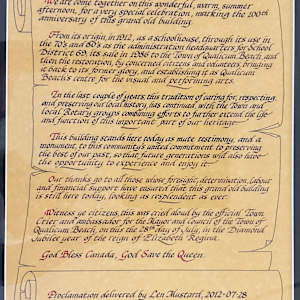 We are come together on this wonderful, warm, summer
afternoon, for a very special celebration, marking the 100th
anniversary of this grand old building.
From its origin in 1912, as a schoolhouse, through its use in
the 70's and 80's as the administration headquarters for School
District 69, its sale in 1986 to the Town of Qualicum Beach and
then the restoration, by concerned citizens and volunteers bringing
it back to its former glory, and establishing it as Qualicum
Beach's centre for the visual and performing arts.
In the last couple of years, this tradition of caring for, respecting,
and preserving our local history has continued, with the Town and
local Rotary groups combining efforts to further extend the life
and function of this important part of our heritage
This building stands here today as mute testimony, and a
monument, to this community's united commitment to preserving
the best of our past, so that future generations will also have
the opportunity to experience and enjoy it
Our thanks go to all those whose foresight, determination, labour
and financial support have ensured that this grand old building
is still here today, looking as resplendent as ever.
Witness ye citizens, this was cried aloud by the official Town
Crier and ambassador for the Mayor and Council of the Town of
Qualicum Beach, on this the 28th day of July, in the Diamond
Jubilee year of the reign of Elizabeth Regina.
God Bless Canada, God Save the Queen.
Proclamation delivered by Len Mustard, 2012-07-28